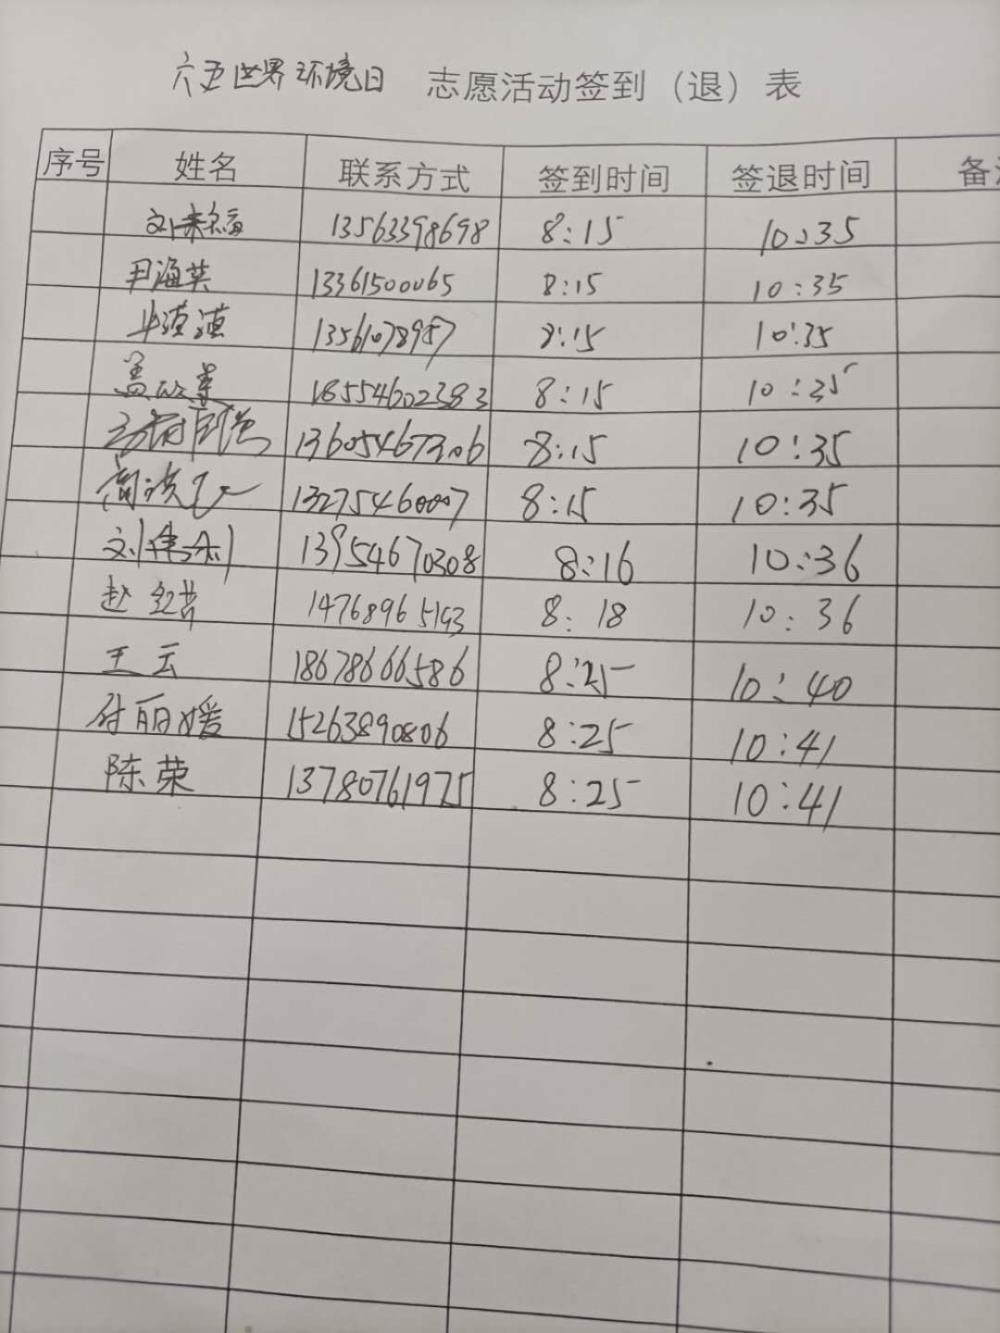 六五世界环境日 志愿活动签到（退）表
序号 姓名 联系方式 签到时间 签退时间 备
13563398698 8:15 10:35
尹海英 13361500065 8:15 10:35
8:15 10:35
18554602383 8:15 10:35
13605467306 8:15 10:35
13275460007 8:15 10:35
13954670308 8:16 10:36
赵 8:18 10:36
王云 18678666586 8:25 10:40
付丽媛 15263890806 8:25 10:41
陈荣 13780761975 8:25 10:41